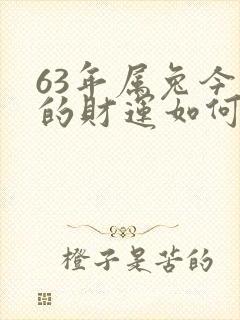 63年属兔今
的财运如何
橙子是苦的